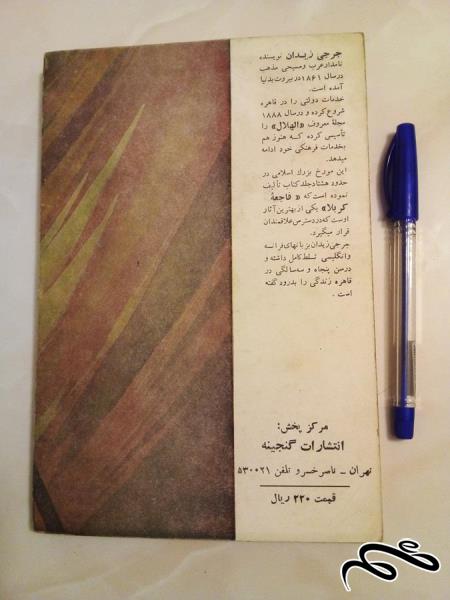 جرجی زیدان نویسنده
نامدار عرب و مسیحی مذهب
در سال ۱۸۶۱ در بیروت بدنیا
آمده است.
خدمات دولتی را در قاهره
شروع کرده و در سال ۱۸۸۸
مجلهٔ معروف «الهلال» را
تأسیس کرده که هنوز هم
بخدمات فرهنگی خود ادامه
میدهد.
این مورخ بزرك اسلامی در
حدود هشتاد جلد کتاب تألیف
نموده است که « فاجعهٔ
کربلا» یکی از بهترین آثار
اوست که در دسترس علاقمندان
قرار میگیرد.
جرجی زیدان بزبانهای فرانسه
و انگلیسی تسلط کامل داشته و
در سن پنجاه و سه سالگی در
قاهره زندگی را بدرود گفته
است .
مرکز پخش:
انتشارات گنجینه
تهران ـ ناصر خسرو تلفن ۵۳۰۰۲۱
قیمت ۲۲۰ ریال